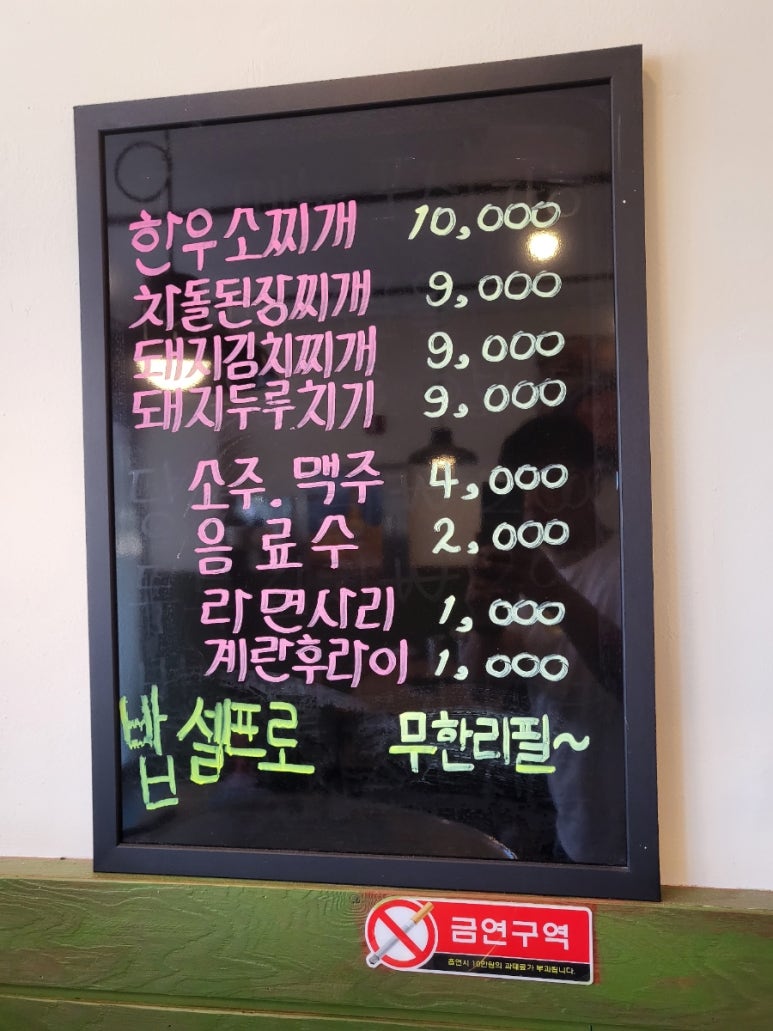 한우소찌개 10,000
차돌된장찌개 9,000
돼지김치찌개 9,000
돼지두루치기 9,000
소주.맥주 4,000
음료수 2,000
라면사리 1,000
계란후라이 1,000
밥 셀프로 무한리필~
금연구역
흡연시 10만원의 과태료가 부과됩니다.